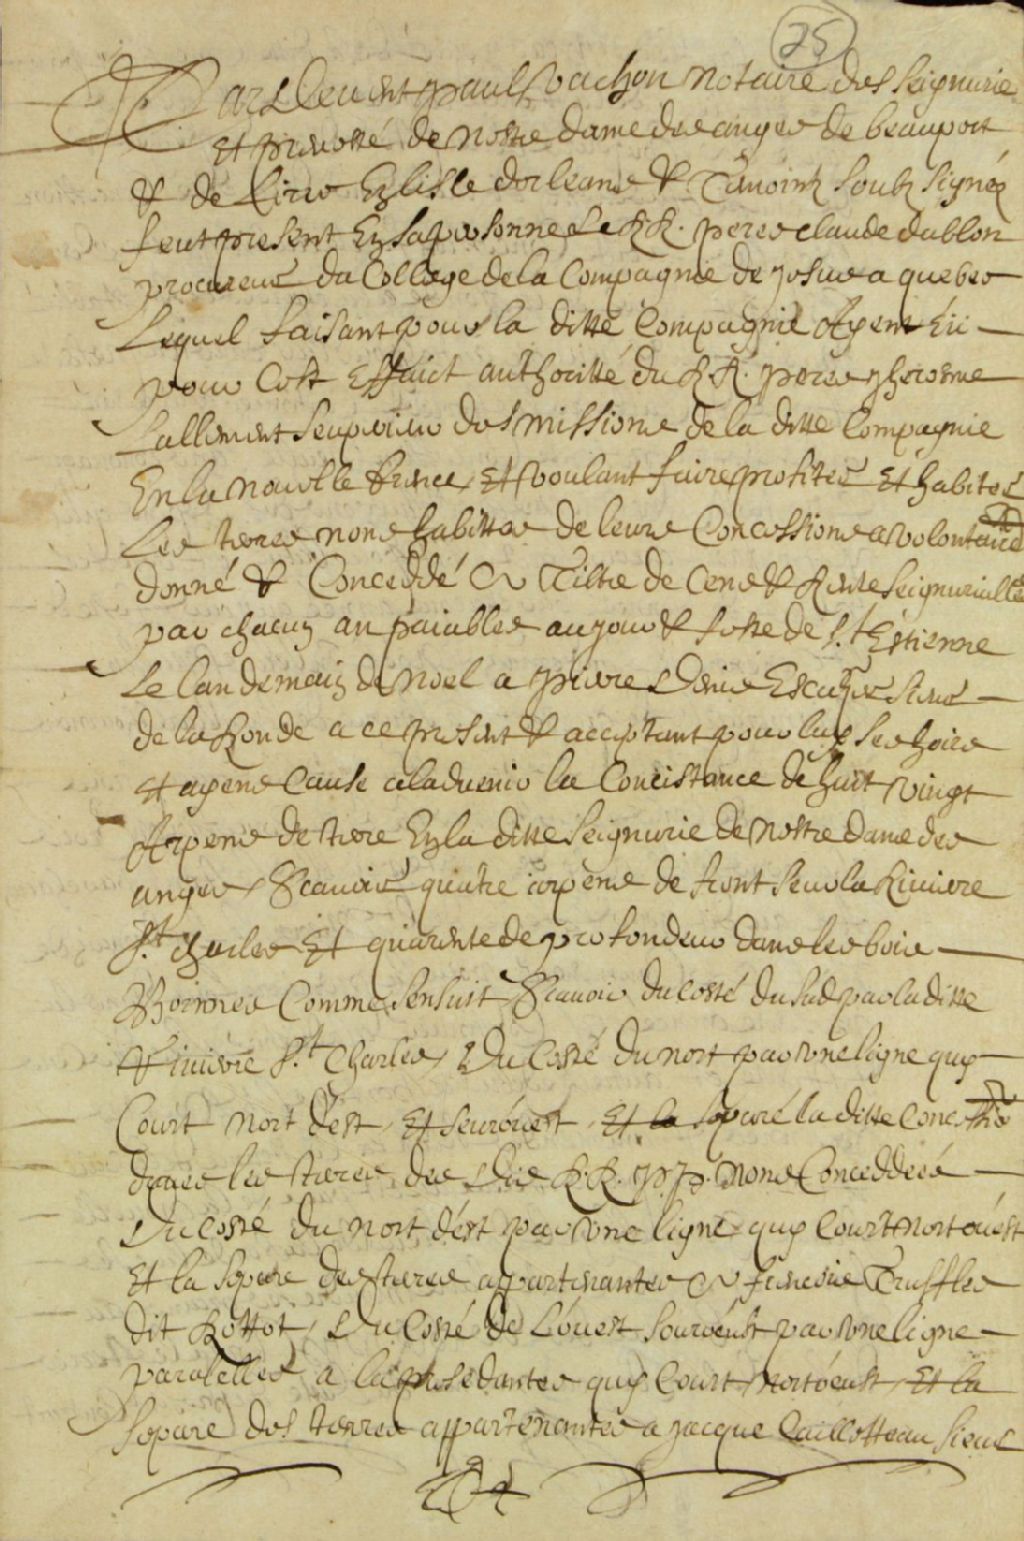 25
Pardevant paul Vachon Notaire des seigneurie
Et prevosté de Nostre dame des anges de beauport
& de l'irle Eglisse dorleans & temoins soubz signéz
feut present En sa personne Le R.R. peres claude dablon
procureur du College de la Compagnie de Jesus a quebec
Lequel faisant pour la ditte Compagnie Ayent Eü
pour Cest Effaict authoritté du R.R. peres jherosme
Lallement Seuperieur des missions de la ditte Compagnie
En la nouvelle france, Et voulant faire profiter Et habiter
Les terres nons habittes de leurs Concessions a volontaire
donné & Conceddé A Tiltre de Cens & Rente seigneurialle
par chacun an paiables au jour & feste de S.t Estienne
Le landemain de Noel a pierre denis Escuyer sieur
de la Ronde a ce present & acceptant pour luy ses hoirs
et ayens cause a ladvenir la Concistance de huit vingt
Arpens de terre En la ditte seigneurie de Nostre dame des
anges Scavoir quatre arpens de front seur la Riviere
S.t charles Et quarente de profondeur dans les bois
Bornnes Comme sensuit Scavoir du costé du sud par la ditte
Riviere S.t Charles, Du Costé du nort par une ligne quy
Court Nort d'est, Et seurouest, Et la separé la ditte Conc
daves les terres des Dis R.R. P.P. nons Conceddeés
Du costé du nort d'est par une ligne quy Court nort ouest
Et la separe des terres appartenantes A francois Truffles
dit Rottot, Du Costé de L'ouest sourouest par une ligne
paralelles a la presedantes quy Court nortouest, Et la
separe des terres appartenantes a jacque Caillotteau sieur